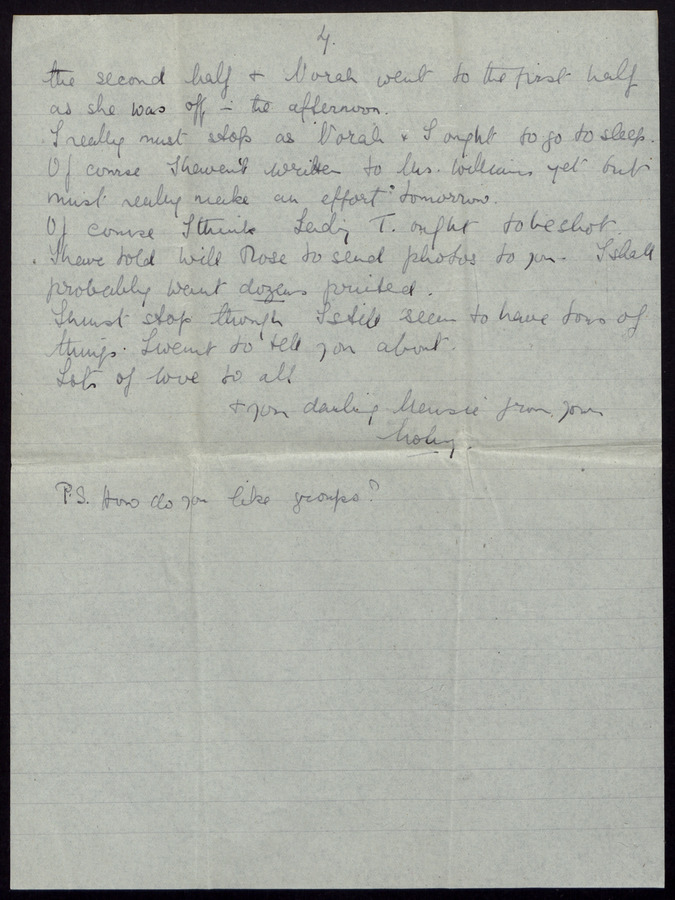 4.
the second half & Norah went to the first half
as she was off in the afternoon.
I really must stop as Norah & I ought to go to sleep.
Of course I haven't written to Mrs. Williams yet but
must really make an effort tomorrow.
Of course I think Lady T. ought to be shot.
I have told Will Rose to send photos to you. I shall
probably want dozens printed.
I must stop though I still seem to have tons of
things I want to tell you about.
Lots of love to all
& you darling from your
P.S. How do you like groups?